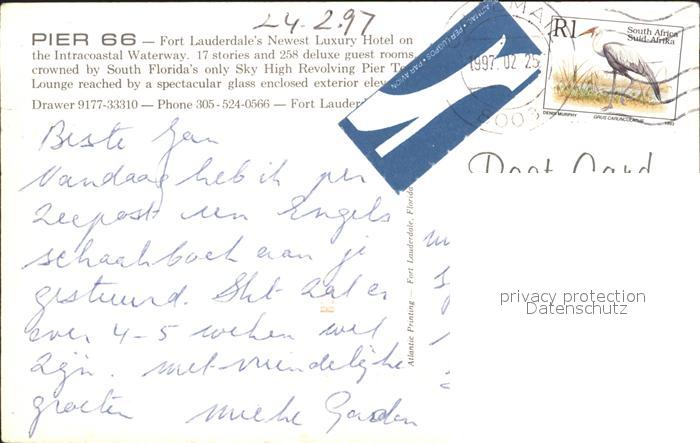 24-2.97
PIER 66 — Fort Lauderdale's Newest Luxury Hotel on
the Intracoastal Waterway. 17 stories and 258 deluxe guest rooms
crowned by South Florida's only Sky High Revolving Pier
Lounge reached by a spectacular glass enclosed exterior
Drawer 9177-33310 — Phone 305-524-0566 — Fort
PER LUGPOS · PAR AVION
1997. 02 25
R1
South Africa
Suid-Afrika
DENIS MURPHY
GRUS CARUNCULATUS
1993
Post Card
Beste Jan
Vandaag heb ik per
Zeepost een Engels
schaakboek aan je
gestuurd. Het zal er
over 4-5 weken wel
zijn. met vriendelijke
groeten Mieke
Atlantic Printing — Fort Lauderdale, Florida
privacy protection
Datenschutz